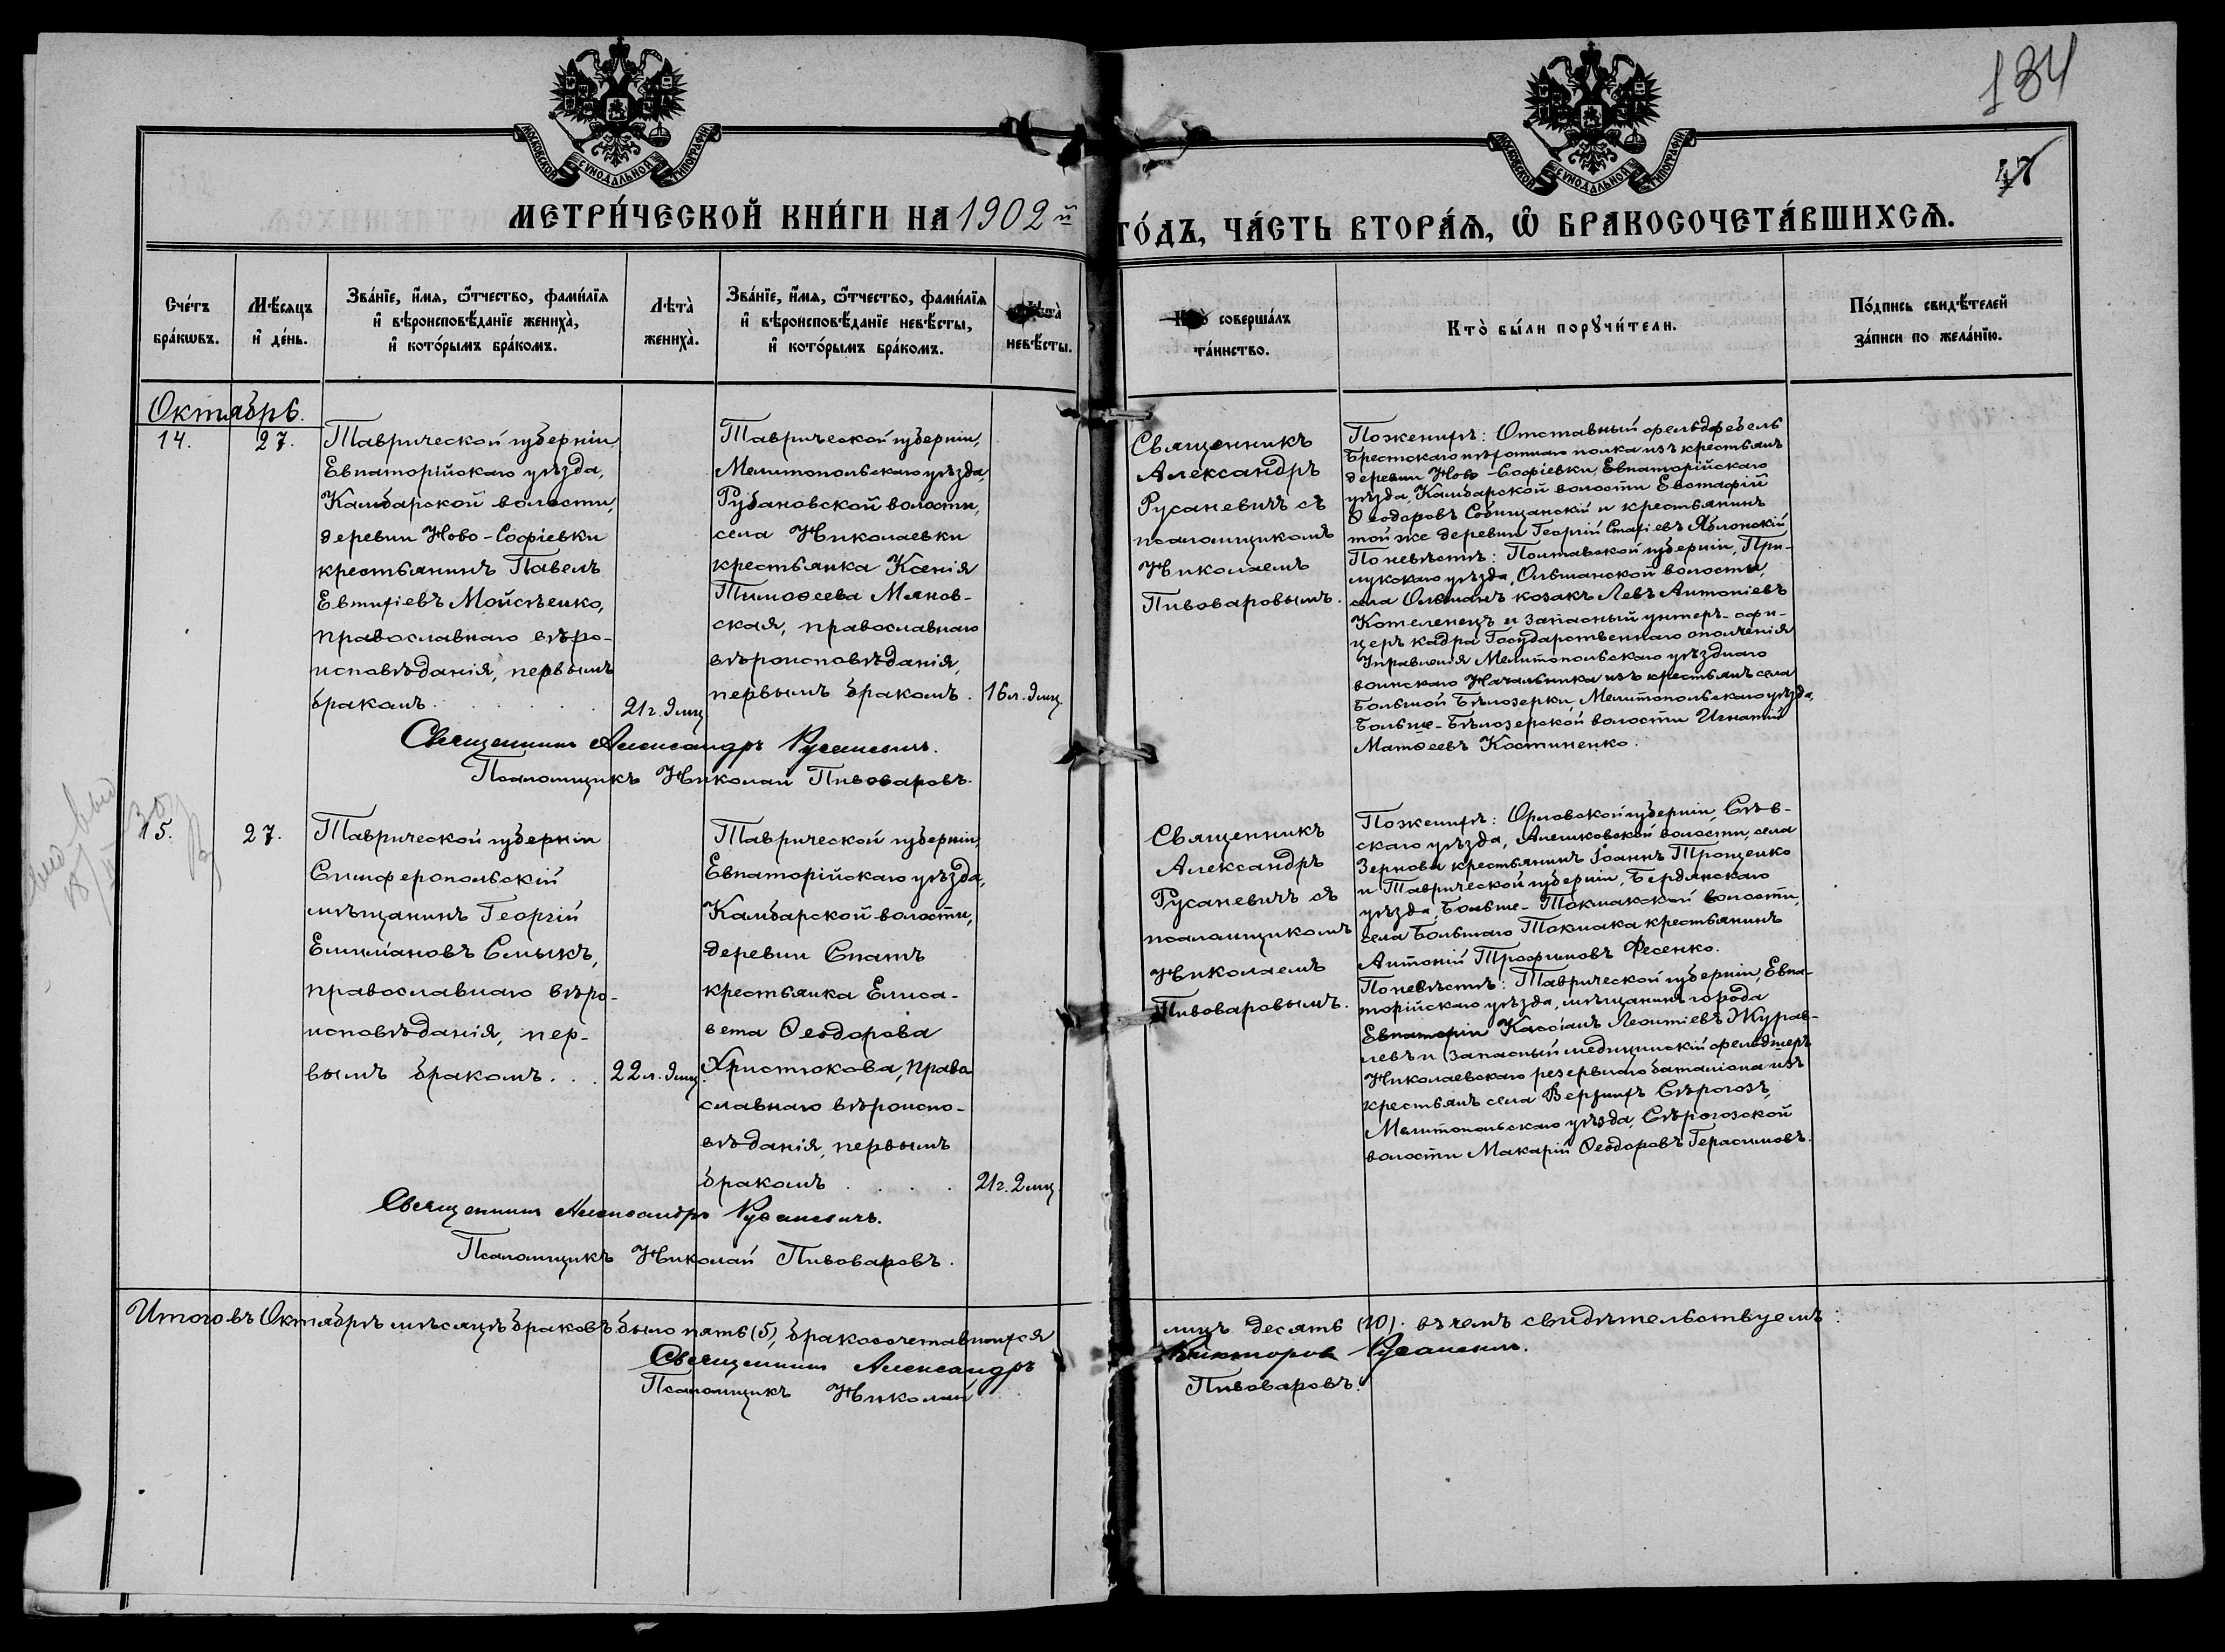 134
47
МОСКОВСКОЙ СѴНОДАЛЬНОЙ ТИПОГРАФІИ
МОСКОВСКОЙ СѴНОДАЛЬНОЙ ТИПОГРАФІИ
МЕТРИ́ЧЕСКОЙ КНИ́ГИ НА 1902й
ГО́ДЪ, ЧА́СТЬ ВТОРА́Ѧ, Ѽ БРАКОСОЧЕТА́ВШИХСѦ.
Сче́тъ
бра́кѡвъ.
Мѣ́сяцъ
и҆ де́нь.
Зва́нїе, и҆́мѧ, ѻ҆́тчество, фами́лїѧ
и҆ вѣроисповѣ́данїе женихà,
и҆ кото́рымъ бра́комъ.
Лѣтà
женихà.
Зва́нїе, и҆́мѧ, ѻ҆́тчество, фами́лїѧ
и҆ вѣроисповѣ́данїе невѣ́сты,
и҆ кото́рымъ бра́комъ.
Лѣтà
невѣ́сты.
Кто̀ соверша́лъ
та́инство.
Кто̀ бы́ли порꙋчи́тели.
По́дпись свидѣ́телей
за́писи по жела́нїю.
Октябрь.
14.
27.
Таврической губерніи,
Евпаторійскаго уѣзда,
Камбарской волости,
деревни Ново-Софіевки
крестьянинъ Павелъ
Евтихіевъ Мойсѣенко,
православнаго вѣро-
исповѣданія, первымъ
бракомъ.
21 г. 9 мц
Таврической губерніи,
Мелитопольскаго уѣзда,
Рубановской волости,
села Николаевки
крестьянка Ксенія
Тимоѳеева Манов-
ская, православнаго
вѣроисповѣданія,
первымъ бракомъ.
16 л. 9 мц.
Священникъ Александръ Русаневичъ.
Псаломщикъ Николай Пивоваровъ.
Священникъ
Александръ
Русаневичъ съ
псаломщикомъ
Николаемъ
Пивоваровымъ.
По женихѣ: Отставный фельдфебель
Брестскаго пѣхотнаго полка изъ крестьянъ
деревни Ново-Софіевки, Евпаторійскаго
уѣзда, Камбарской волости Евстафій
Ѳеодоровъ Собищанскій и крестьянинъ
той же деревни Георгій Стафіевъ Яблонскій
По невѣстѣ: Полтавской губерніи, При-
лукскаго уѣзда, Ольшанской волости,
села Ольшанъ козакъ Левъ Антоніевъ
Котеленецъ и запасный унтеръ-офи-
церъ кадра Государственнаго ополченія
Управленія Мелитопольскаго уѣзднаго
воинскаго Начальника изъ крестьянъ села
Большой Бѣлозерки, Мелитопольскаго уѣзда,
Больше-Бѣлозерской волости Игнатій
Матѳеевъ Костиненко.
15.
27.
Таврической губерніи
Симферопольскій
мѣщанинъ Георгій
Емиліановъ Смыкъ,
православнаго вѣро-
исповѣданія, пер-
вымъ бракомъ. . .
22 л. 9 мц.
Таврической губерніи,
Евпаторійскаго уѣзда,
Камбарской волости,
деревни Спатъ
крестьянка Елиса-
вета Ѳеодорова
Христюкова, право
славнаго вѣроиспо-
вѣданія, первымъ
бракомъ
21 г. 2 мц.
Священникъ Александръ Русаневичъ.
Псаломщикъ Николай Пивоваровъ.
Священникъ
Александръ
Русаневичъ съ
псаломщикомъ
Николаемъ
Пивоваровымъ.
По женихѣ: Орловской губерніи, Сѣв-
скаго уѣзда, Алешковской волости, села
Зернова крестьянинъ Іоаннъ Трощенко
и Таврической губерніи, Бердянскаго
уѣзда, Больше-Токмакской волости,
села Большаго Токмака крестьянинъ
Антоній Трофимовъ Фесенко.
По невѣстѣ: Таврической губерніи, Евпа-
торійскаго уѣзда, мѣщанинъ города
Евпаторіи Кассіанъ Леонтіевъ Журав-
левъ и запасный медицинскій фельдшеръ
Николаевскаго резервнаго баталіона изъ
крестьянъ села Верхнихъ Сѣрогозъ,
Мелитопольскаго уѣзда, Сѣрогозской
волости Макарій Ѳеодоровъ Герасимовъ.
Итого въ Октябрѣ мѣсяцѣ браковъ было пять (5), бракосочетавшихся
лицъ десять (10). въ чемъ свидѣтельствуемъ:
Священникъ Александръ
Русаневичъ.
Псаломщикъ Николай
Пивоваровъ.